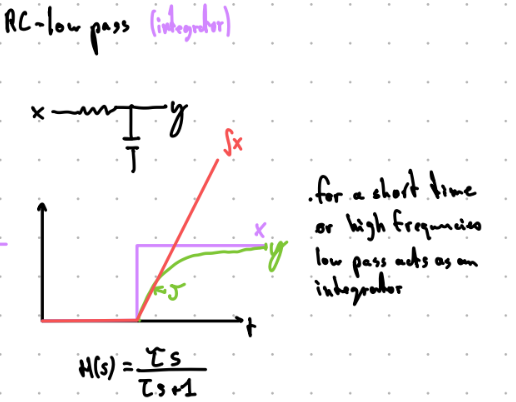 RC-low pass (integrator)
x y
∫x
.for a short time
or high frequncies
low pass acts as an
integrator
x
y
τ
t
H(s) = τs / τs+1